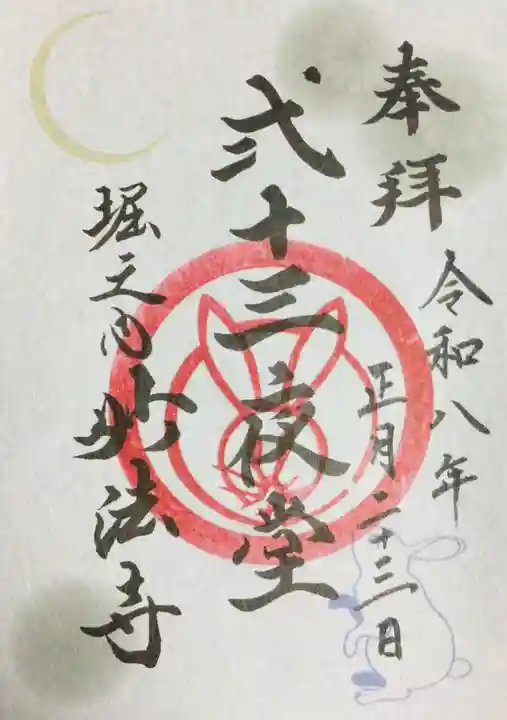 奉拝
令和八年
正月二十三日
弐十三夜堂
堀之内妙法寺